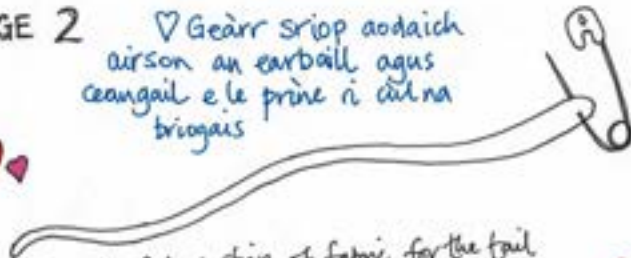 GE 2
♡ Geàrr sriop aodaich
airson an earbaill agus
ceangail e le prìne ri cùl na
briogais
strip of fabric for the tail